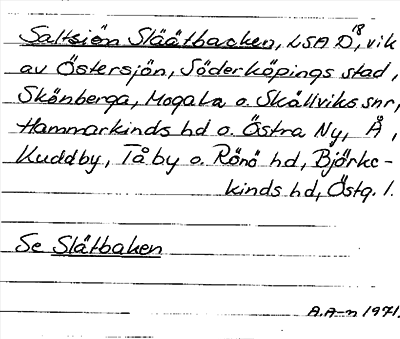 Saltsiön Släätbacken, LSA D¹⁸, vik
av Östersjön, Söderköpings stad,
Skönberga, Mogata o. Skällviks snr,
Hammarkinds hd o. Östra Ny, Å,
Kuddby, Tåby o. Rönö hd, Björke-
kinds hd, Östg. l.
Se Slätbaken
A.A-n 1971.